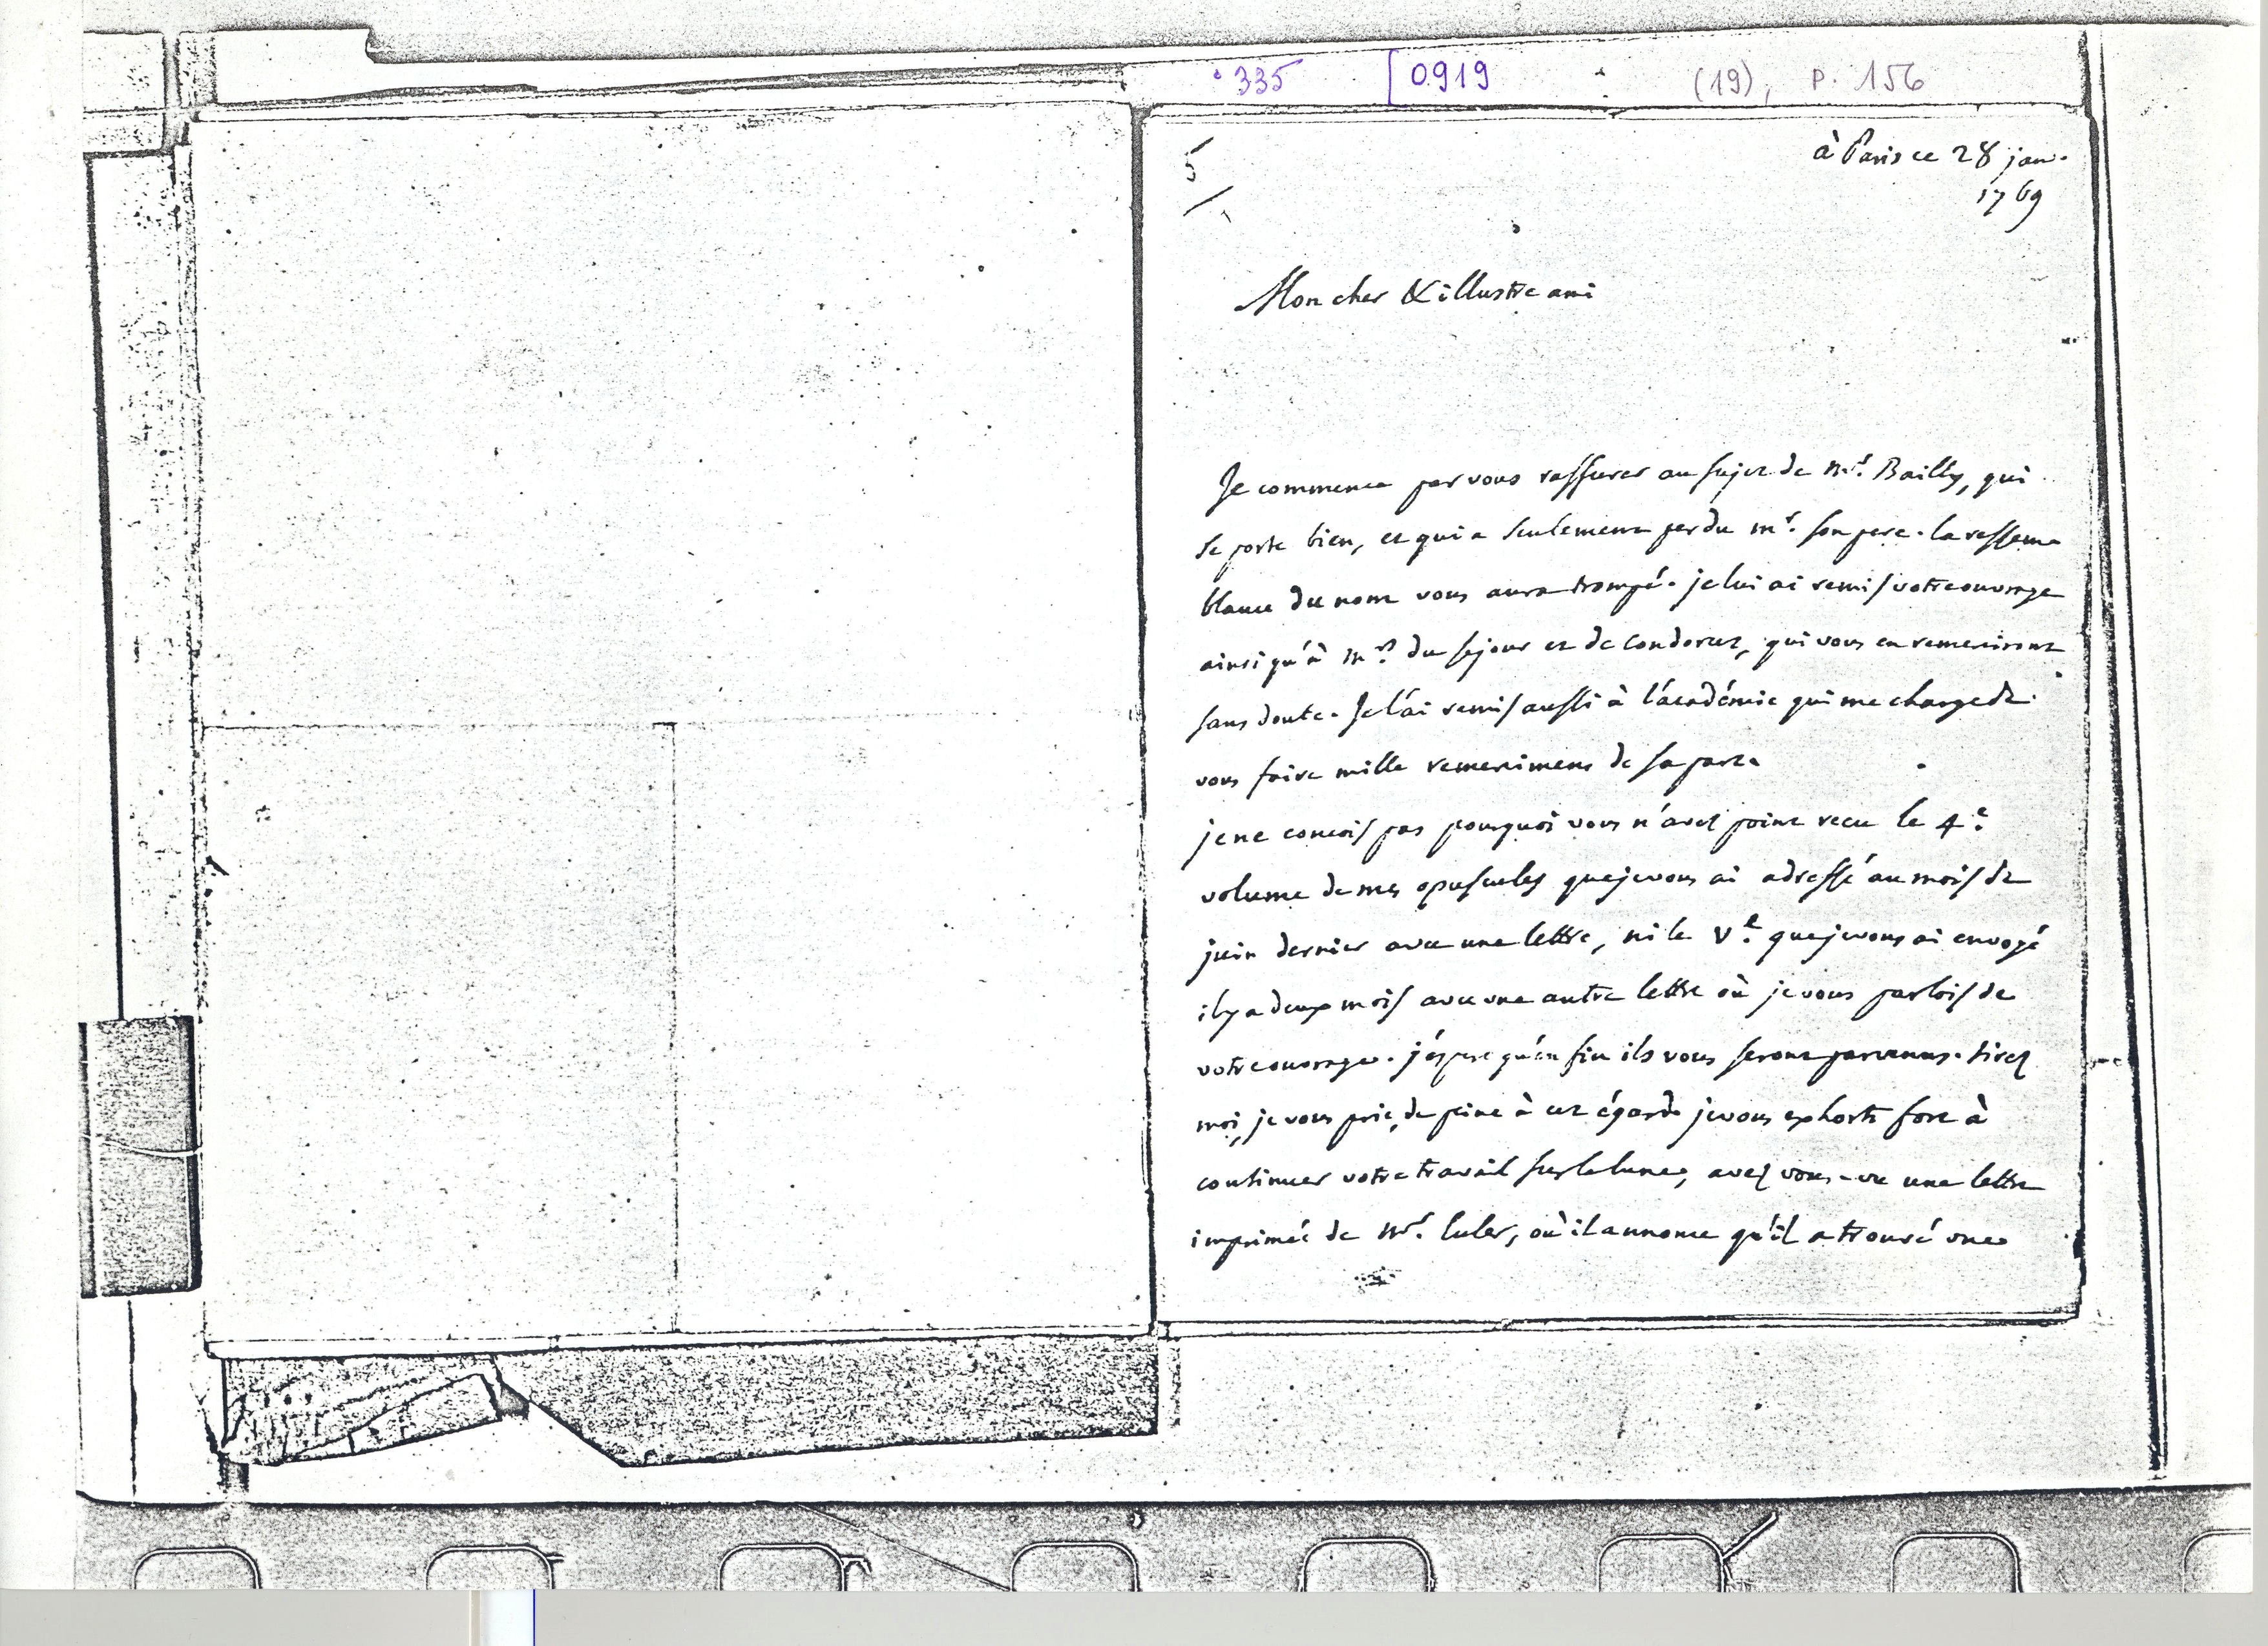 335 [0919 (19), p. 156
5
à Paris ce 28 janv.
1769
Mon cher & illustre ami
Je commence par vous rassurer au sujet de Mr. Bailly, qui
se porte bien, et qui a seulement perdu mr. son pere. la ressem
blance du nom vous aura trompé. je lui ai remis votre ouvrage
ainsi qu'à mrs. du sejour et de Condorcet, qui vous en remerciront
sans doute. Je l'ai remis aussi à l'académie qui me charge de
vous faire mille remercimens de sa part.
je ne concois pas pourquoi vous n'avez point recu le 4e.
volume de mes opuscules que je vous ai adressé au mois de
juin dernier avec une lettre, ni le Ve. que je vous ai envoyé
il y a deux mois avec une autre lettre où je vous parlois de
votre ouvrage. j'espere qu'en fin ils vous seront parvenus. tirez
moi, je vous prie, de peine à cet égard. je vous exhorte fort à
continuer votre travail sur la lune, avez vous vu une lettre
imprimée de Mr. Euler, où il annonce qu'il a trouvé une